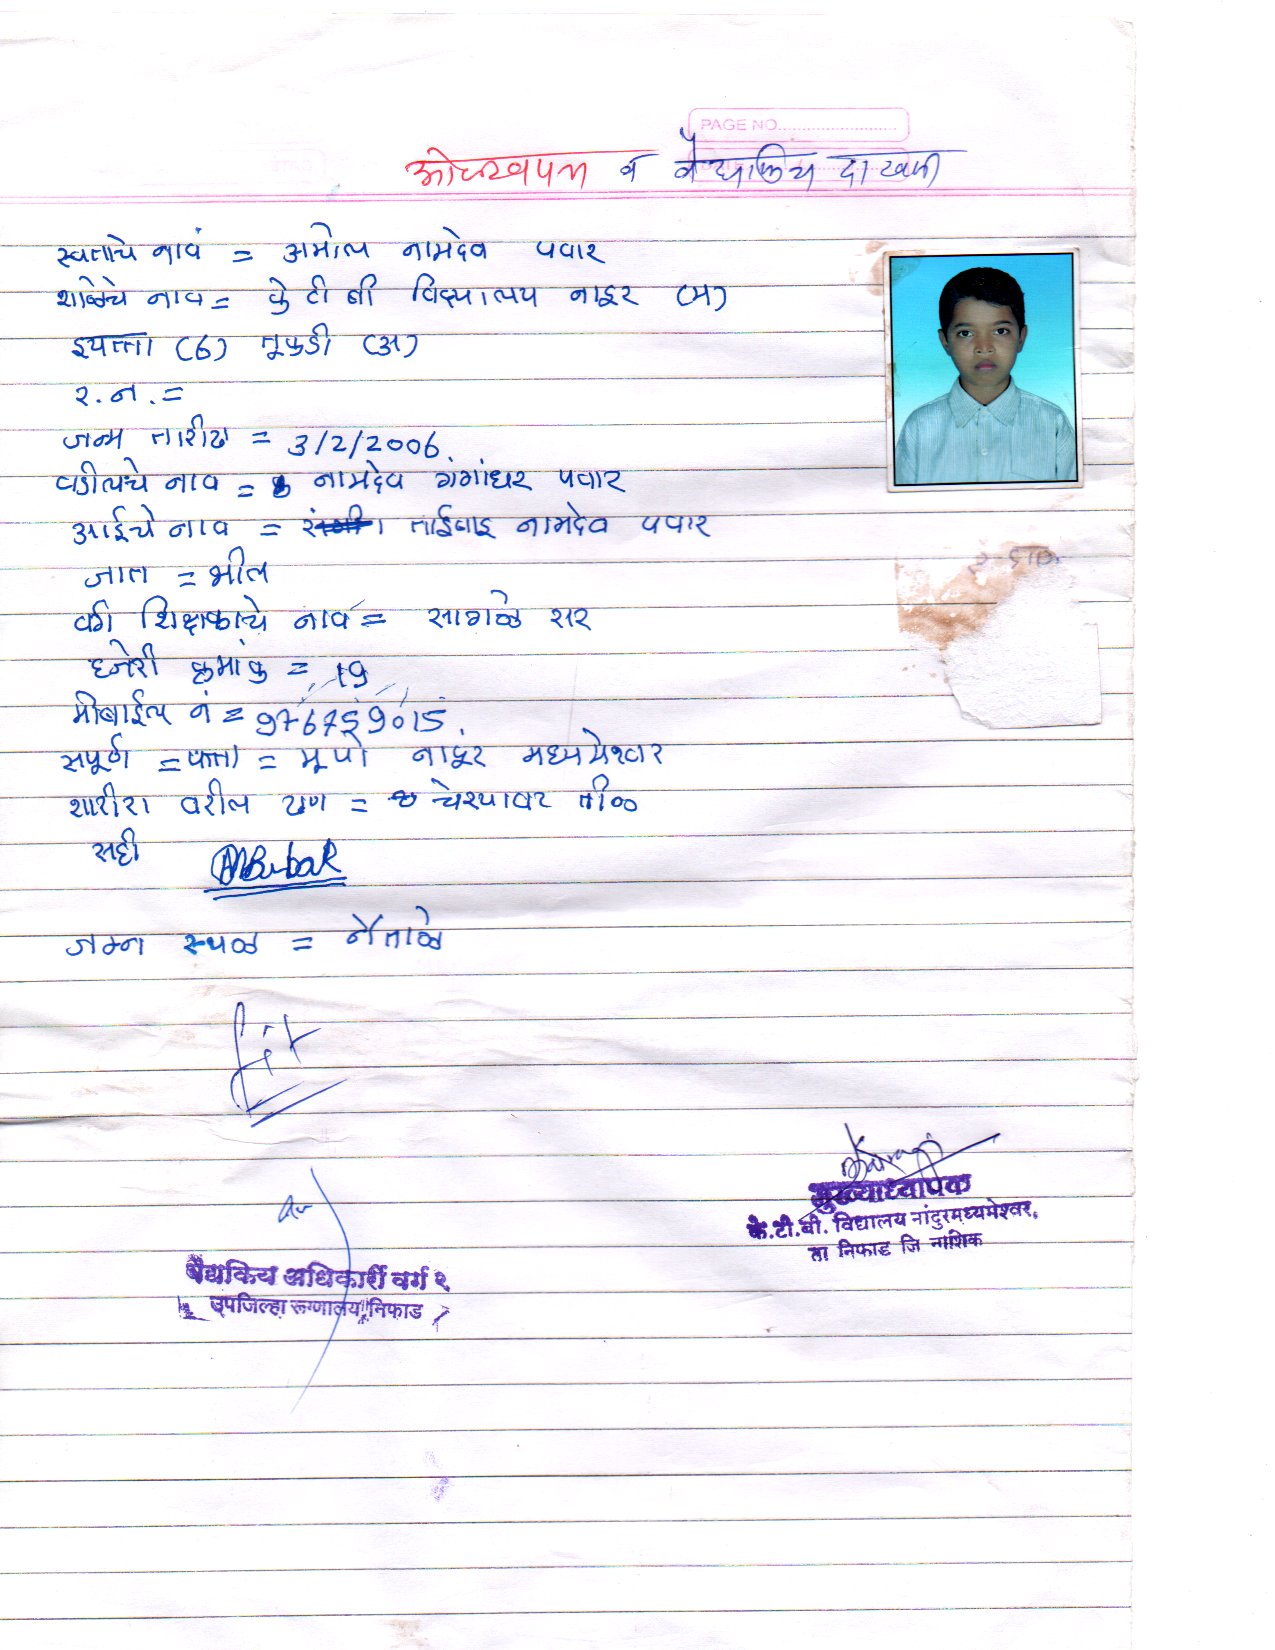 PAGE NO.
ओळखपत्र व वैद्यकिय दाखला
स्वताचे नावं = अमोल नामदेव पवार
शाळेचे नाव = के टी बी विद्यालय नादुर (म)
इयत्ता (6) तूकडी (अ)
र.न. =
जन्म तारीख = 3/2/2006.
वडीलचे नाव = नामदेव गंगाधर पवार
आईचे नाव = ताईबाइ नामदेव पवार
जात = भील
वर्ग शिक्षकाचे नाव = सागळे सर
हजेरी क्रमांक = 19
मोबाईल नं =
सपूर्ण = पत्ता = मू पो नादूर मध्यमेश्वर
शरीरा वरील खुण = चेहऱ्यावर तीळ
सही
जन्म स्थळ = नैताळे
fit
मुख्याध्यापक
के.टी.बी. विद्यालय नांदुरमध्यमेश्वर,
ता निफाड जि नाशिक
वैद्यकिय अधिकारी वर्ग २
उपजिल्हा रूग्णालय, निफाड